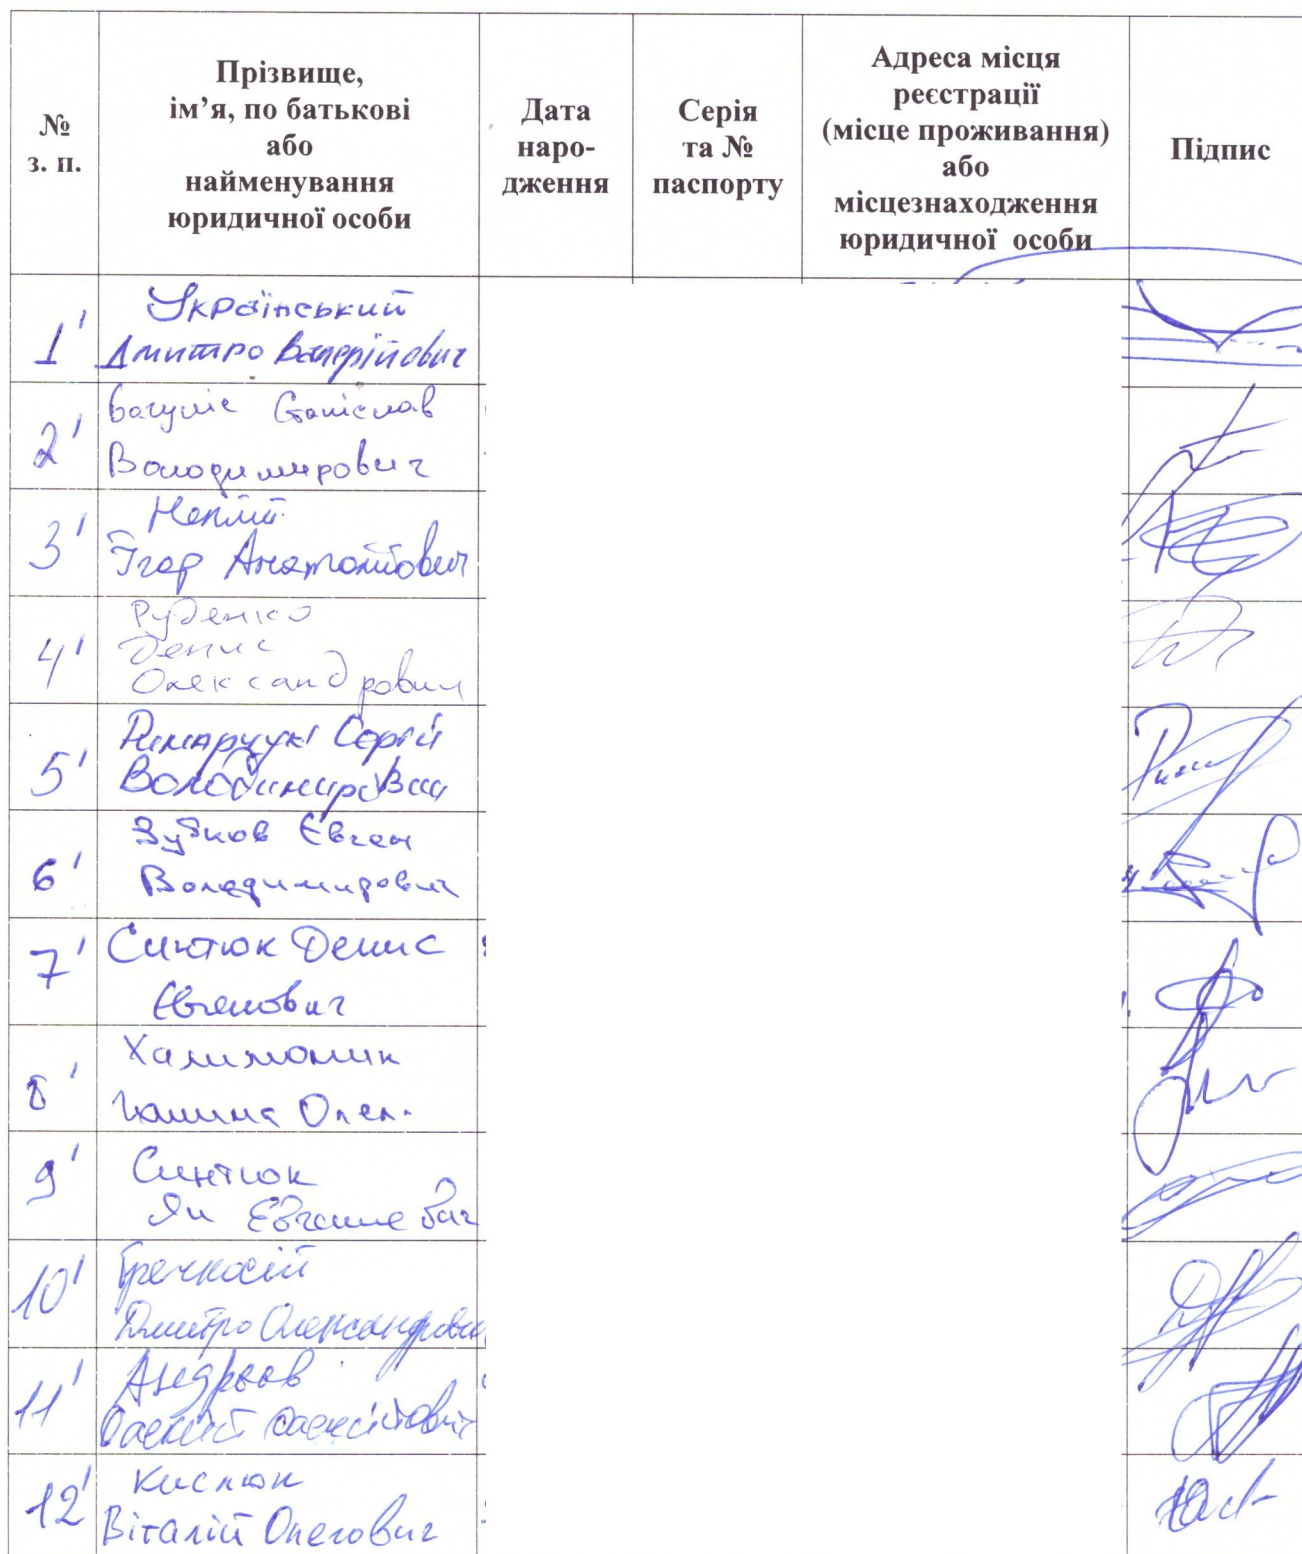 №
з. п.
Прізвище,
ім’я, по батькові
або
найменування
юридичної особи
Дата
наро-
дження
Серія
та №
паспорту
Адреса місця
реєстрації
(місце проживання)
або
місцезнаходження
юридичної особи
Підпис
1'
Український
Дмитро Валерійович
2'
Станіслав
Володимирович
3'
Ігор Анатолійович
4'
Руденко
Денис
Олександрович
5'
Сергій
Володимирович
6'
Зубков Євген
Володимирович
7'
Синтюк Денис
Євгенович
8'
Халимоник
Олек.
9'
Синтюк
Ян
10'
Гречкосій
Дмитро Олександрович
11'
Андрєєв
Олексій Олексійович
12'
Кислюк
Віталій Олегович